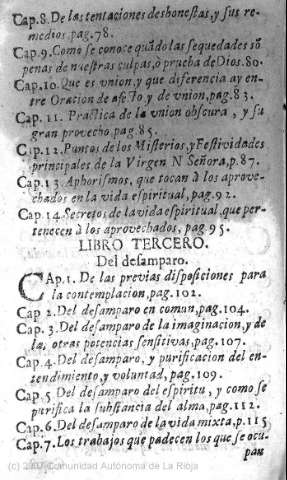 Cap.8. De las tentaciones deshonestas, y sus re-
medios, pag.78.
Cap.9. Como se conoce quãdo las sequedades sõ
penas de nuestras culpas, ò prueba de Dios. 80.
Cap.10. Que es vnion, y que diferencia ay en-
tre Oracion de afecto y de vnion, pag.83.
Cap. 11. Practica de la vnion obscura, y su
gran provecho, pag.85.
Cap.12. Puntos de los Misterios, y Festividades
principales de la Virgen N Señora, p.87.
Cap.13. Aphorismos, que tocan à los aprove-
chados en la vida espiritual, pag.92.
Cap.14. Secretos de la vida espiritual, que per-
tenecen à los aprovechados, pag 95.
LIBRO TERCERO.
Del desamparo.
CAp.1. De las previas disposiciones para
la contemplacion, pag.102.
Cap 2. Del desamparo en comun, pag.104.
Cap. 3. Del desamparo de la imaginacion, y de
la, otras potencias sensitivas, pag.107.
Cap.4. Del desamparo, y purificacion del en-
tendimiento, y voluntad, pag.109.
Cap.5 Del desamparo del espiritu, y como se
purifica la substancia del alma, pag.112.
Cap.6. Del desamparo de la vida mixta, p.115
Cap.7. Los trabajos que padecen los que se ocu-
pan
(c) 2007 Comunidad Autónoma de La Rioja